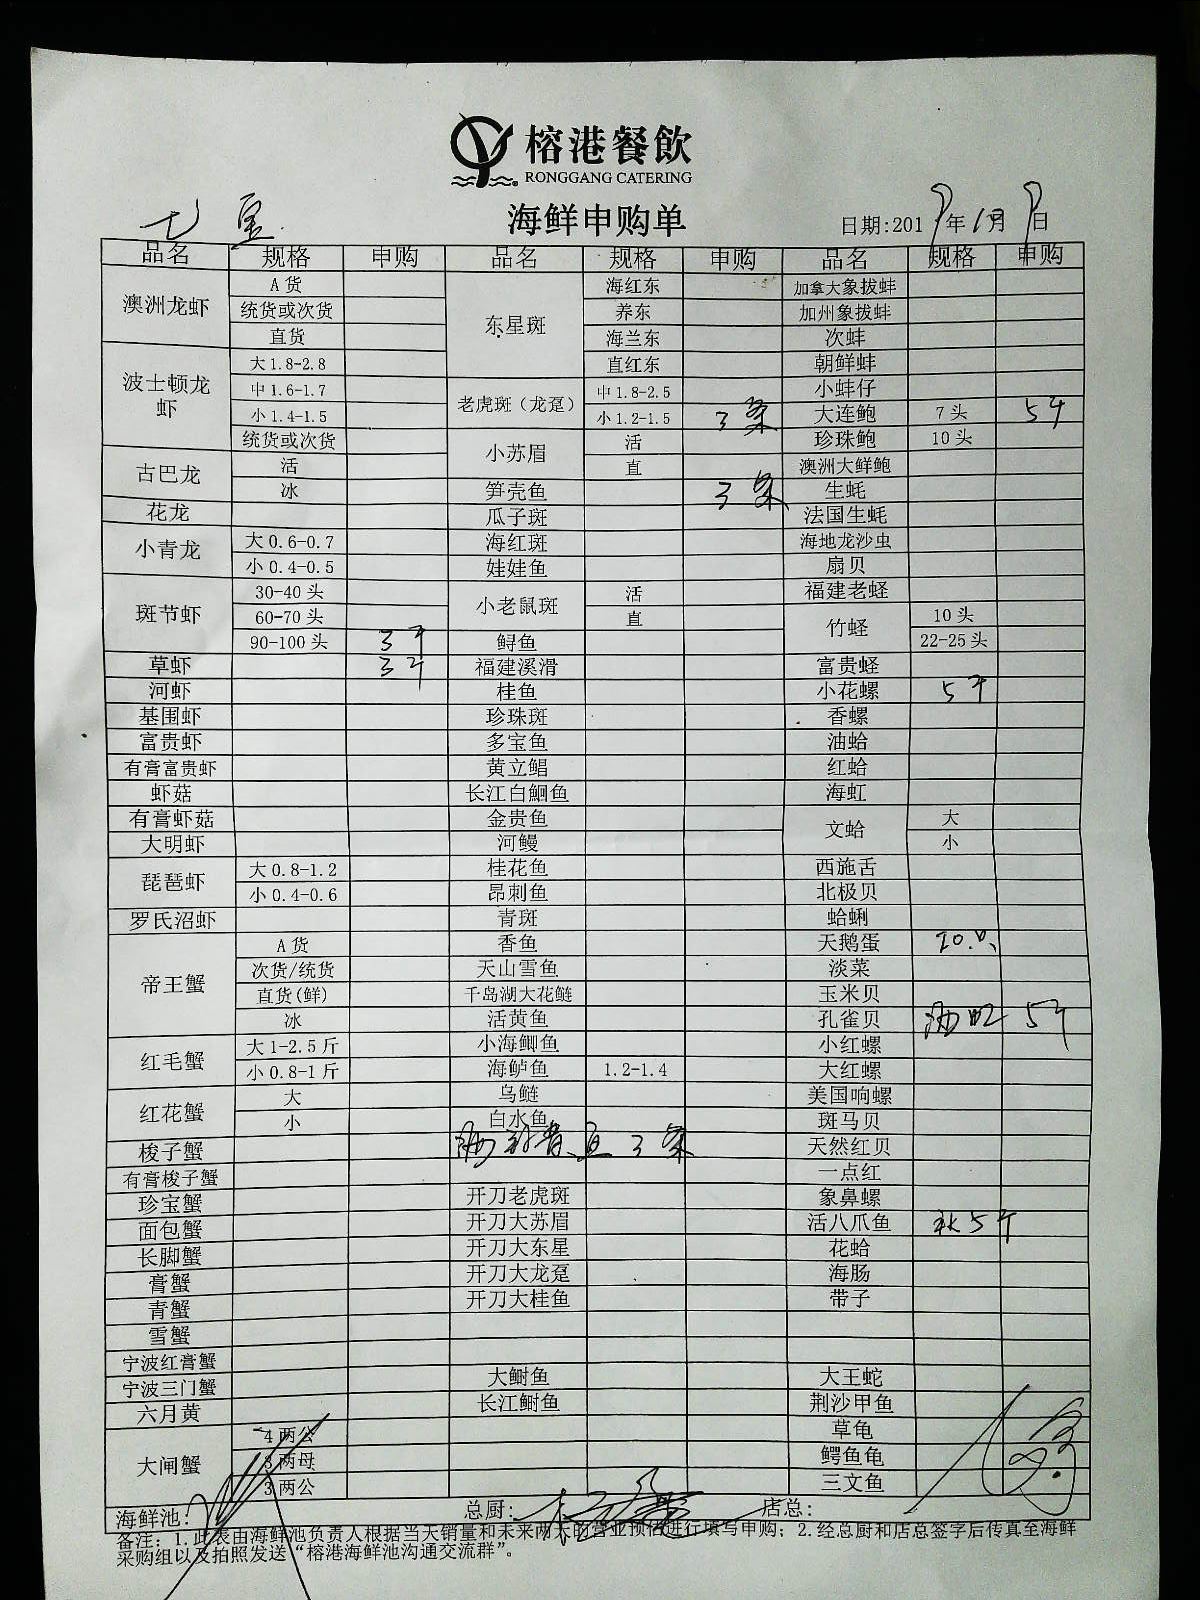 榕港餐飲
RONGGANG CATERING
七宝 海鲜申购单 日期:2019年1月9日
品名 规格 申购 品名 规格 申购 品名 规格 申购
澳洲龙虾 A货 东星斑 海红东 加拿大象拔蚌
统货或次货 养东 加州象拔蚌
直货 海兰东 次蚌
波士顿龙虾 大1.8-2.8 直红东 朝鲜蚌
中1.6-1.7 老虎斑(龙趸) 中1.8-2.5 小蚌仔
小1.4-1.5 小1.2-1.5 3条 大连鲍 7头 5斤
统货或次货 小苏眉 活 珍珠鲍 10头
古巴龙 活 直 澳洲大鲜鲍
冰 笋壳鱼 3条 生蚝
花龙 瓜子斑 法国生蚝
小青龙 大0.6-0.7 海红斑 海地龙沙虫
小0.4-0.5 娃娃鱼 扇贝
斑节虾 30-40头 小老鼠斑 活 福建老蛏
60-70头 直 竹蛏 10头
90-100头 3斤 鲟鱼 22-25头
草虾 3斤 福建溪滑 富贵蛏
河虾 桂鱼 小花螺 5斤
基围虾 珍珠斑 香螺
富贵虾 多宝鱼 油蛤
有膏富贵虾 黄立鲳 红蛤
虾菇 长江白鮰鱼 海虹
有膏虾菇 金贵鱼 文蛤 大
大明虾 河鳗 小
琵琶虾 大0.8-1.2 桂花鱼 西施舌
小0.4-0.6 昂刺鱼 北极贝
罗氏沼虾 青斑 蛤蜊
帝王蟹 A货 香鱼 天鹅蛋 20.
次货/统货 天山雪鱼 淡菜
直货(鲜) 千岛湖大花鲢 玉米贝
冰 活黄鱼 孔雀贝 5斤
红毛蟹 大1-2.5斤 小海鲫鱼 小红螺
小0.8-1斤 海鲈鱼 1.2-1.4 大红螺
红花蟹 大 乌鲢 美国响螺
小 白水鱼 斑马贝
梭子蟹 3条 天然红贝
有膏梭子蟹 一点红
珍宝蟹 开刀老虎斑 象鼻螺
面包蟹 开刀大苏眉 活八爪鱼 5斤
长脚蟹 开刀大东星 花蛤
膏蟹 开刀大龙趸 海肠
青蟹 开刀大桂鱼 带子
雪蟹
宁波红膏蟹
宁波三门蟹 大鲥鱼 大王蛇
六月黄 长江鲥鱼 荆沙甲鱼
大闸蟹 4两公 草龟
3两母 鳄鱼龟
3两公 三文鱼
海鲜池: 总厨: 店总:
备注:1.此表由海鲜池负责人根据当天销量和未来两天的营业预估进行填写申购;2.经总厨和店总签字后传真至海鲜
采购组以及拍照发送“榕港海鲜池沟通交流群”。